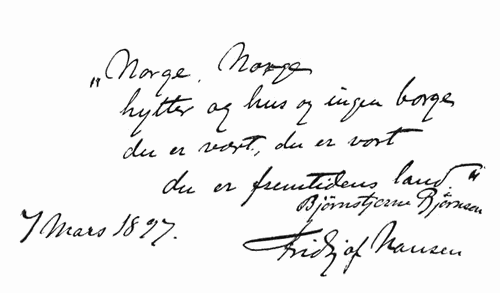 „Norge, Norge
hytter og hus og ingen borge
du er vort, du er vort
du er fremtidens land"
Bjørnstjerne Bjørnson
7 Mars 1897.
Fridtjof Nansen